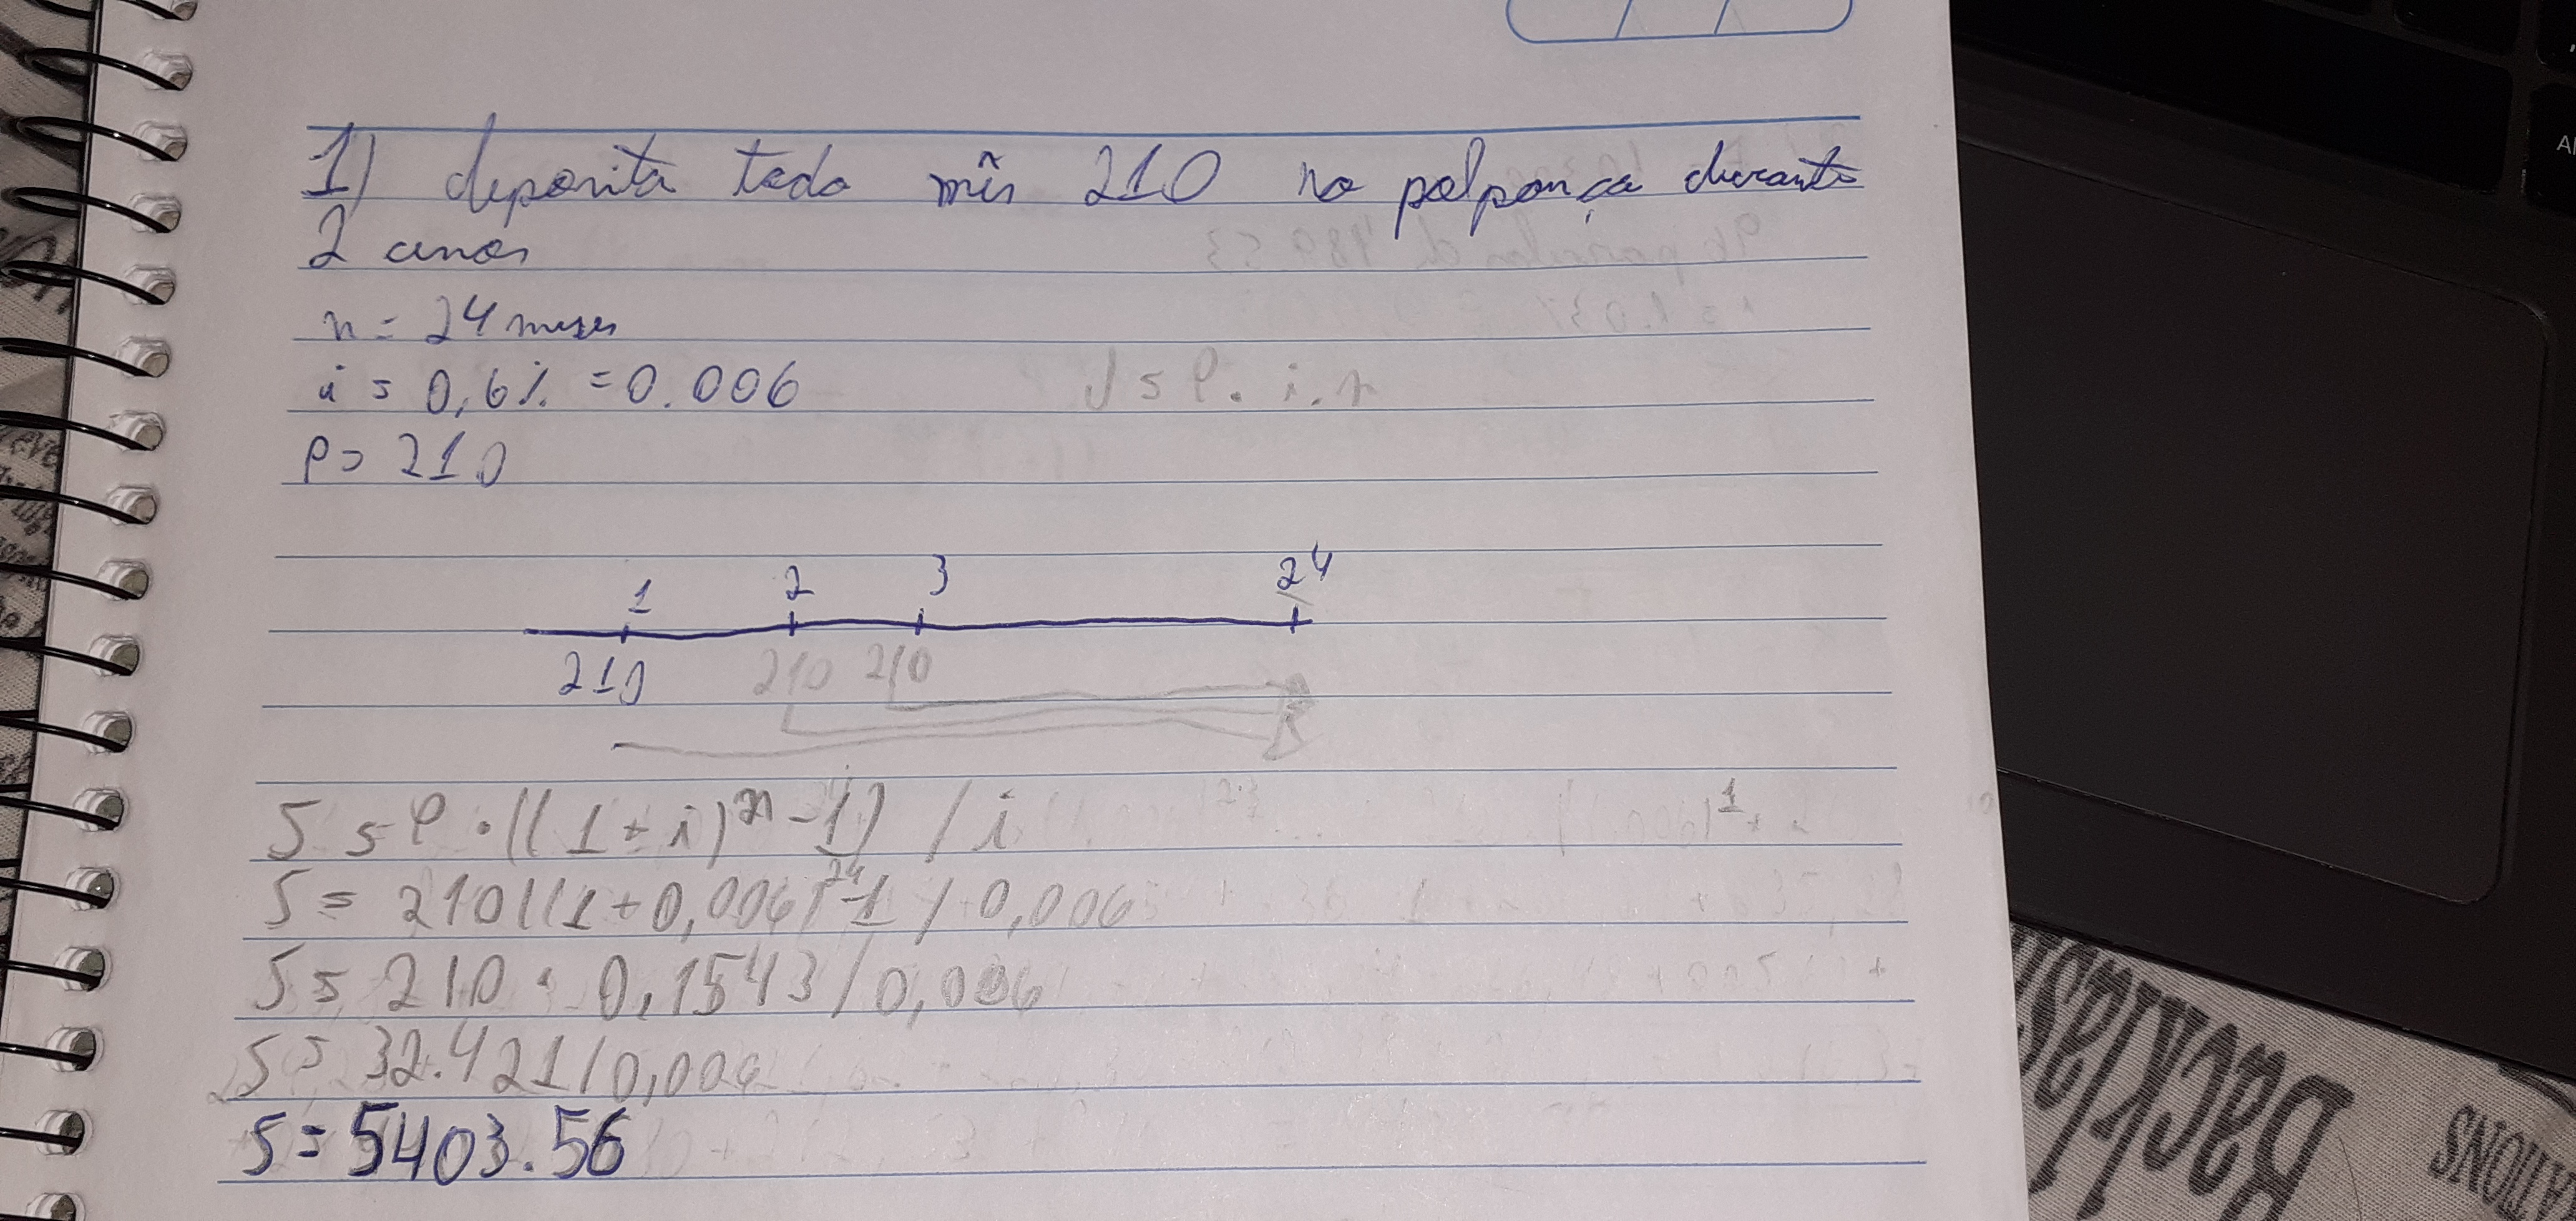 1) deposita todo mês 210 na polpança durante
2 anos
n = 24 meses
i = 0,6% = 0.006
J = P. i. n
P = 210
1 2 3 24
210 210 210
S = P . ((1 + i)^n - 1) / i
S = 210 ((1 + 0,006)^24 - 1 / 0,006
S = 210 . 0,1543 / 0,006
S = 32.421 / 0,006
S = 5403.56
BackYes
ATIONS